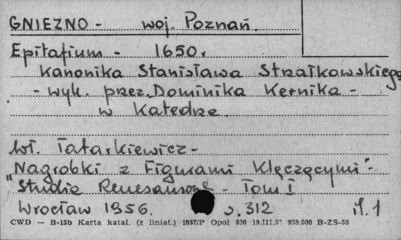 GNIEZNO - woj. Poznań.
Epitafium - 1650.
Kanonika Stanisława Strzałkowskiego
- wyk. przez Dominika Kernika -
w Katedrze.
Wł. Tatarkiewicz -
"Nagrobki z Figurami Klęczącymi"-
"Studia Renesansowe - Tom I
Wrocław 1956. s. 312 il. 1
CWD — B-15b Karta katal. (z liniat.) Opol 19.III.57 B-ZS-56